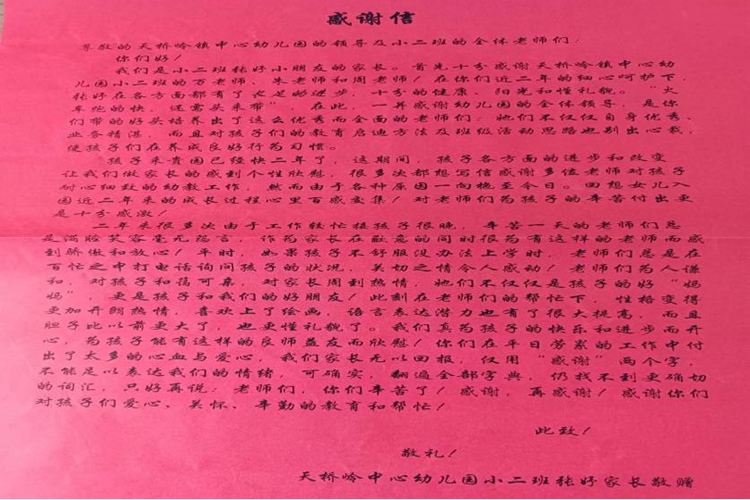 感谢信
尊敬的天桥岭镇中心幼儿园的领导及小二班的全体老师们！
你们好！
我们是小二班张好小朋友的家长。首先十分感谢天桥岭镇中心幼
儿园小二班的万老师、朱老师和周老师！在你们近二年的细心呵护下，
张好在各方面都有了长足的进步，十分的健康、阳光和懂礼貌。“火
车跑的快，还需头来带” 在此，一并感谢幼儿园的全体领导，是你
们带的好头培养出了这么优秀而全面的老师们：她们不仅仅自身优秀、
业务精湛，而且对孩子们的教育启迪方法及班级活动思路也别出心裁，
使孩子们在养成良好行为习惯。
孩子来贵园已经快二年了，这期间，孩子各方面的进步和改变
让我们做家长的感到个性欣慰，很多次都想写信感谢多位老师对孩子
耐心细致的幼教工作，然而由于各种原因一向拖至今日。回想女儿入
园近二年来的成长过程心里百感交集！对老师们为孩子的辛苦付出更
是十分感激！
二年来很多次由于工作较忙接孩子很晚，辛苦一天的老师们总
是满脸笑容毫无怨言，作为家长在歉意的同时很为有这样的老师而感
到骄傲和放心！平时，如果孩子不舒服没办法上学时，老师们总是在
百忙之中打电话询问孩子的状况，关切之情令人感动！老师们为人谦
和，对孩子和蔼可亲，对家长周到热情，她们不仅仅是孩子的好“妈
妈”，更是孩子和我们的好朋友！此刻在老师们的帮忙下，性格变得
更加开朗热情，喜欢上了绘画，语言表达潜力也有了很大提高，而且
胆子比以前更大了，也更懂礼貌了。我们真为孩子的快乐和进步而开
心，为孩子能有这样的良师益友而欣慰！你们在平日劳累的工作中付
出了太多的心血与爱心，我们家长无以回报，仅用“感谢”两个字，
不能足以表达我们的情绪，可确实，翻遍全部字典，仍找不到更确切
的词汇，只好再说：老师们，你们辛苦了！感谢，再感谢！感谢你们
对孩子们爱心、关怀、辛勤的教育和帮忙！
此致！
敬礼！
天桥岭中心幼儿园小二班张好家长敬赠